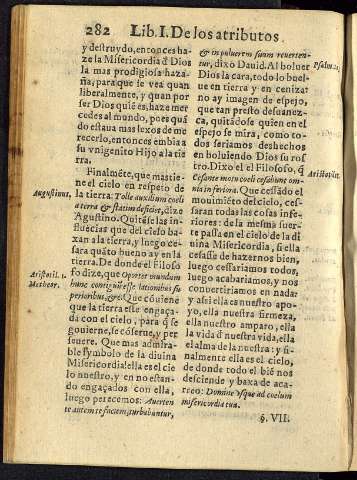 282 Lib. I. De los atributos
y destruydo, entonces ha-
ze la Misericordia d̃ Dios
la mas prodigiosa haza-
ña, para que se vea quan
liberalmente, y quan por
ser Dios quiẽ es, haze mer
cedes al mundo, pues quã
do estaua mas lexos de me
recerlo, entonces embia a
su vnigenito Hijo a la tie
rra.
Finalmẽte, que mastie-
ne el cielo en respeto de
la tierra. Tolle auxilium coeli
a terra & statim deficiet, dize
Augustinus.
Agustino. Quitesle las in-
fluẽcias que del cielo ba-
xan a la tierra, y luego ce-
sara quãto bueno ay en la
tierra. De donde el Filoso
fo dize, que Oportet mundum
Aristotil. 1.
Metheor.
hunc contiguũ esse lationibus su
perioribus, &c. Que cõuiene
que la tierra este engaça-
da con el cielo, para q̃ se
gouierne, se cõserue, y per
seuere. Que mas admira-
ble symbolo de la diuina
Misericordia! ella es el cie
lo nuestro, y en no estan-
do engaçados con ella,
luego perecemos: Auerten
te autem te faciem, turbabuntur,
& in puluerem suum reuerten-
tur, dixo Dauid. Al boluer
Psalm.
Dios la cara, todo lo buel-
ue en tierra y en ceniza:
no ay imagen de espejo,
que tan presto desuanez-
ca, quitãdose quien en el
espejo se mira, como to-
dos seriamos deshechos
en boluiendo Dios su ros
tro. Dixo el Filosofo, q̃
Aristotil.
Cessante motu coeli cessabunt om-
nia inferiora. Que cessãdo el
mouimiẽto del cielo, ces-
saran todas las cosas infe-
riores: de la mesma suer-
te passa en el cielo de la di
uina Misericordia, si ella
cessasse de hazernos bien,
luego cessariamos todos,
luego acabariamos, y nos
conuertiriamos en nada:
y assi ella es nuestro apo-
yo, ella nuestra firmeza,
ella nuestro amparo, ella
la vida d̃ nuestra vida, ella
el alma de la nuestra: y fi-
nalmente ella es el cielo,
de donde todo el biẽ nos
desciende y baxa de aca-
rreo: Domine vsque ad coelum
misericordia tua.
§. VII.